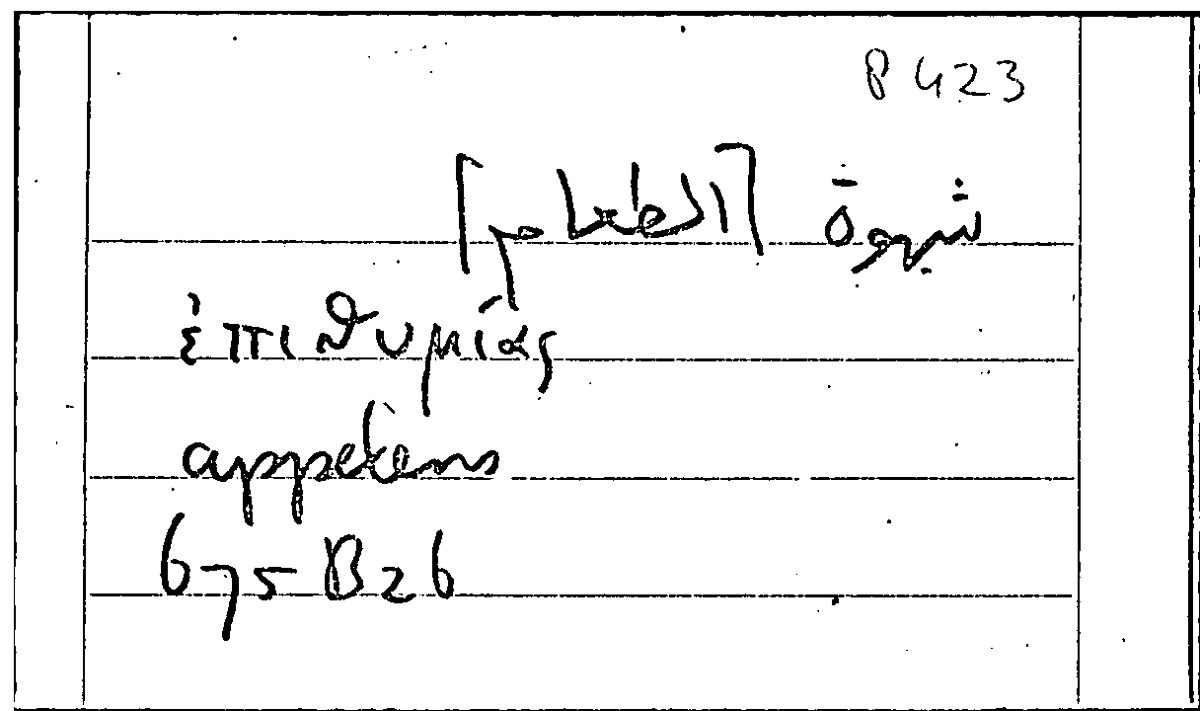 P 423
شهوة [الطعام]
ἐπιθυμίας
appetens
675 B 26